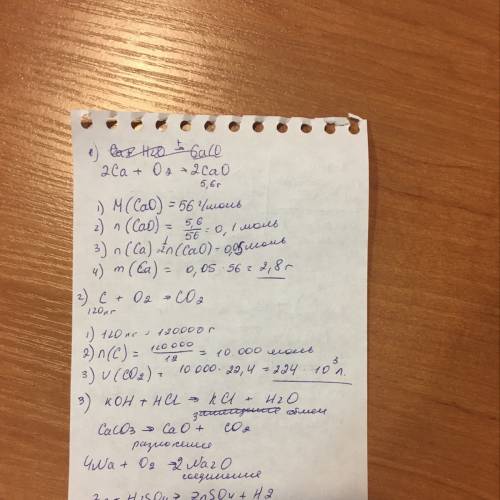 1) Ca + H2O →t CaO
2Ca + O2 → 2CaO
5,6г
1) M(CaO) = 56 г/моль
2) n(CaO) = 5,6/56 = 0,1 моль
3) n(Ca) = ½n(CaO) = 0,05 моль
4) m(Ca) = 0,05 · 56 = 2,8 г
2) C + O2 → CO2
120кг
1) 120 кг = 120000 г
2) n(C) = 120 000/12 = 10 000 моль
3) V(CO2) = 10 000 · 22,4 = 224 · 10³ л.
3) KOH + HCl → KCl + H2O
замещение обмен
CaCO3 → CaO + CO2
разложение
4Na + O2 → 2Na2O
соединение
Zn + H2SO4 → ZnSO4 + H2